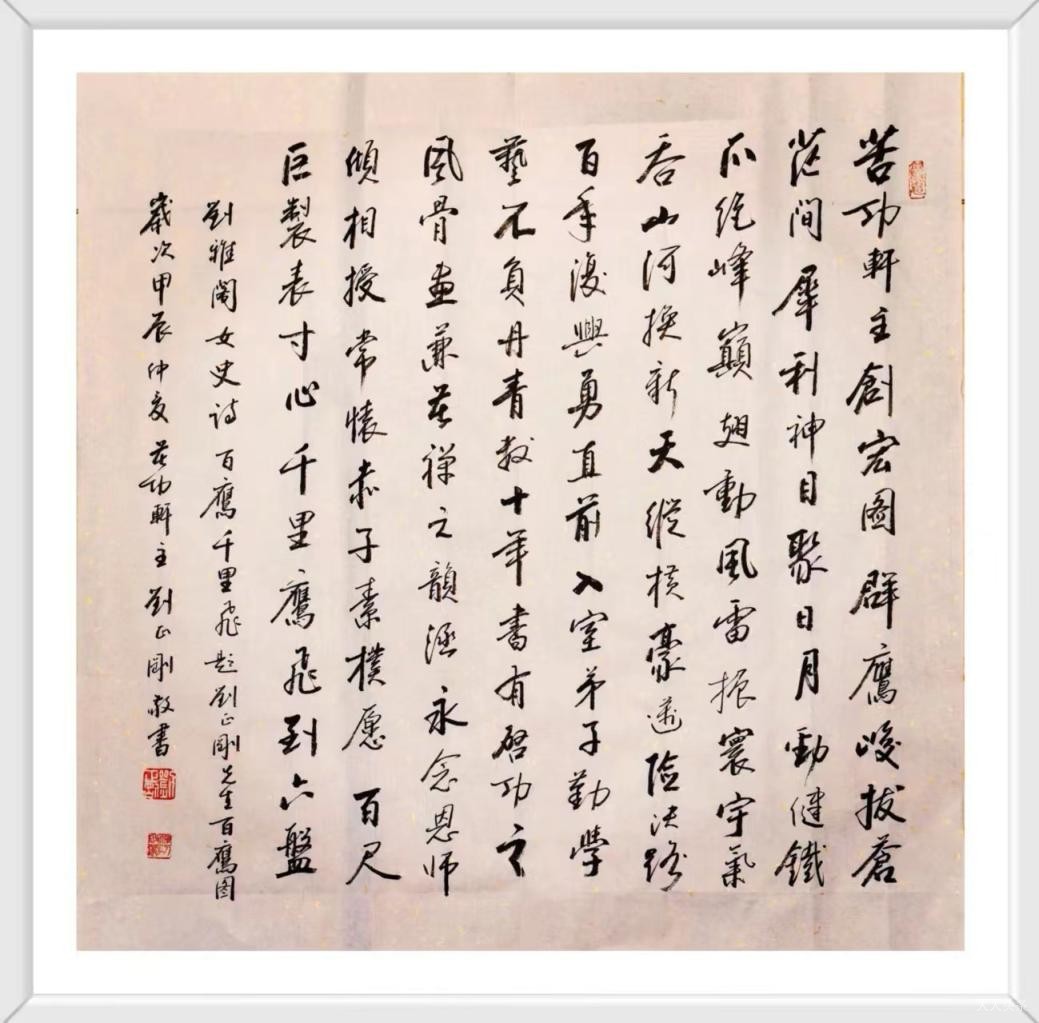 苦功軒主創宏圖群鷹峻拔蒼
茫間犀利神目聚日月勁健鐵
爪绝峰巔翅動風雷振寰宇氣
吞山河換新天縱横豪邁險决路
百年復興勇直前入室弟子勤學
藝不負丹青数十年書有啓功之
風骨畫蓮苦禪之韻涵永念恩师
傾相授常懷赤子素樸愿百尺
巨製表寸心千里鷹飛到六盤
劉雅閣女史诗百鷹千里飛题劉正剛先生百鷹图
歲次甲辰仲夏苦功軒主劉正剛敬書